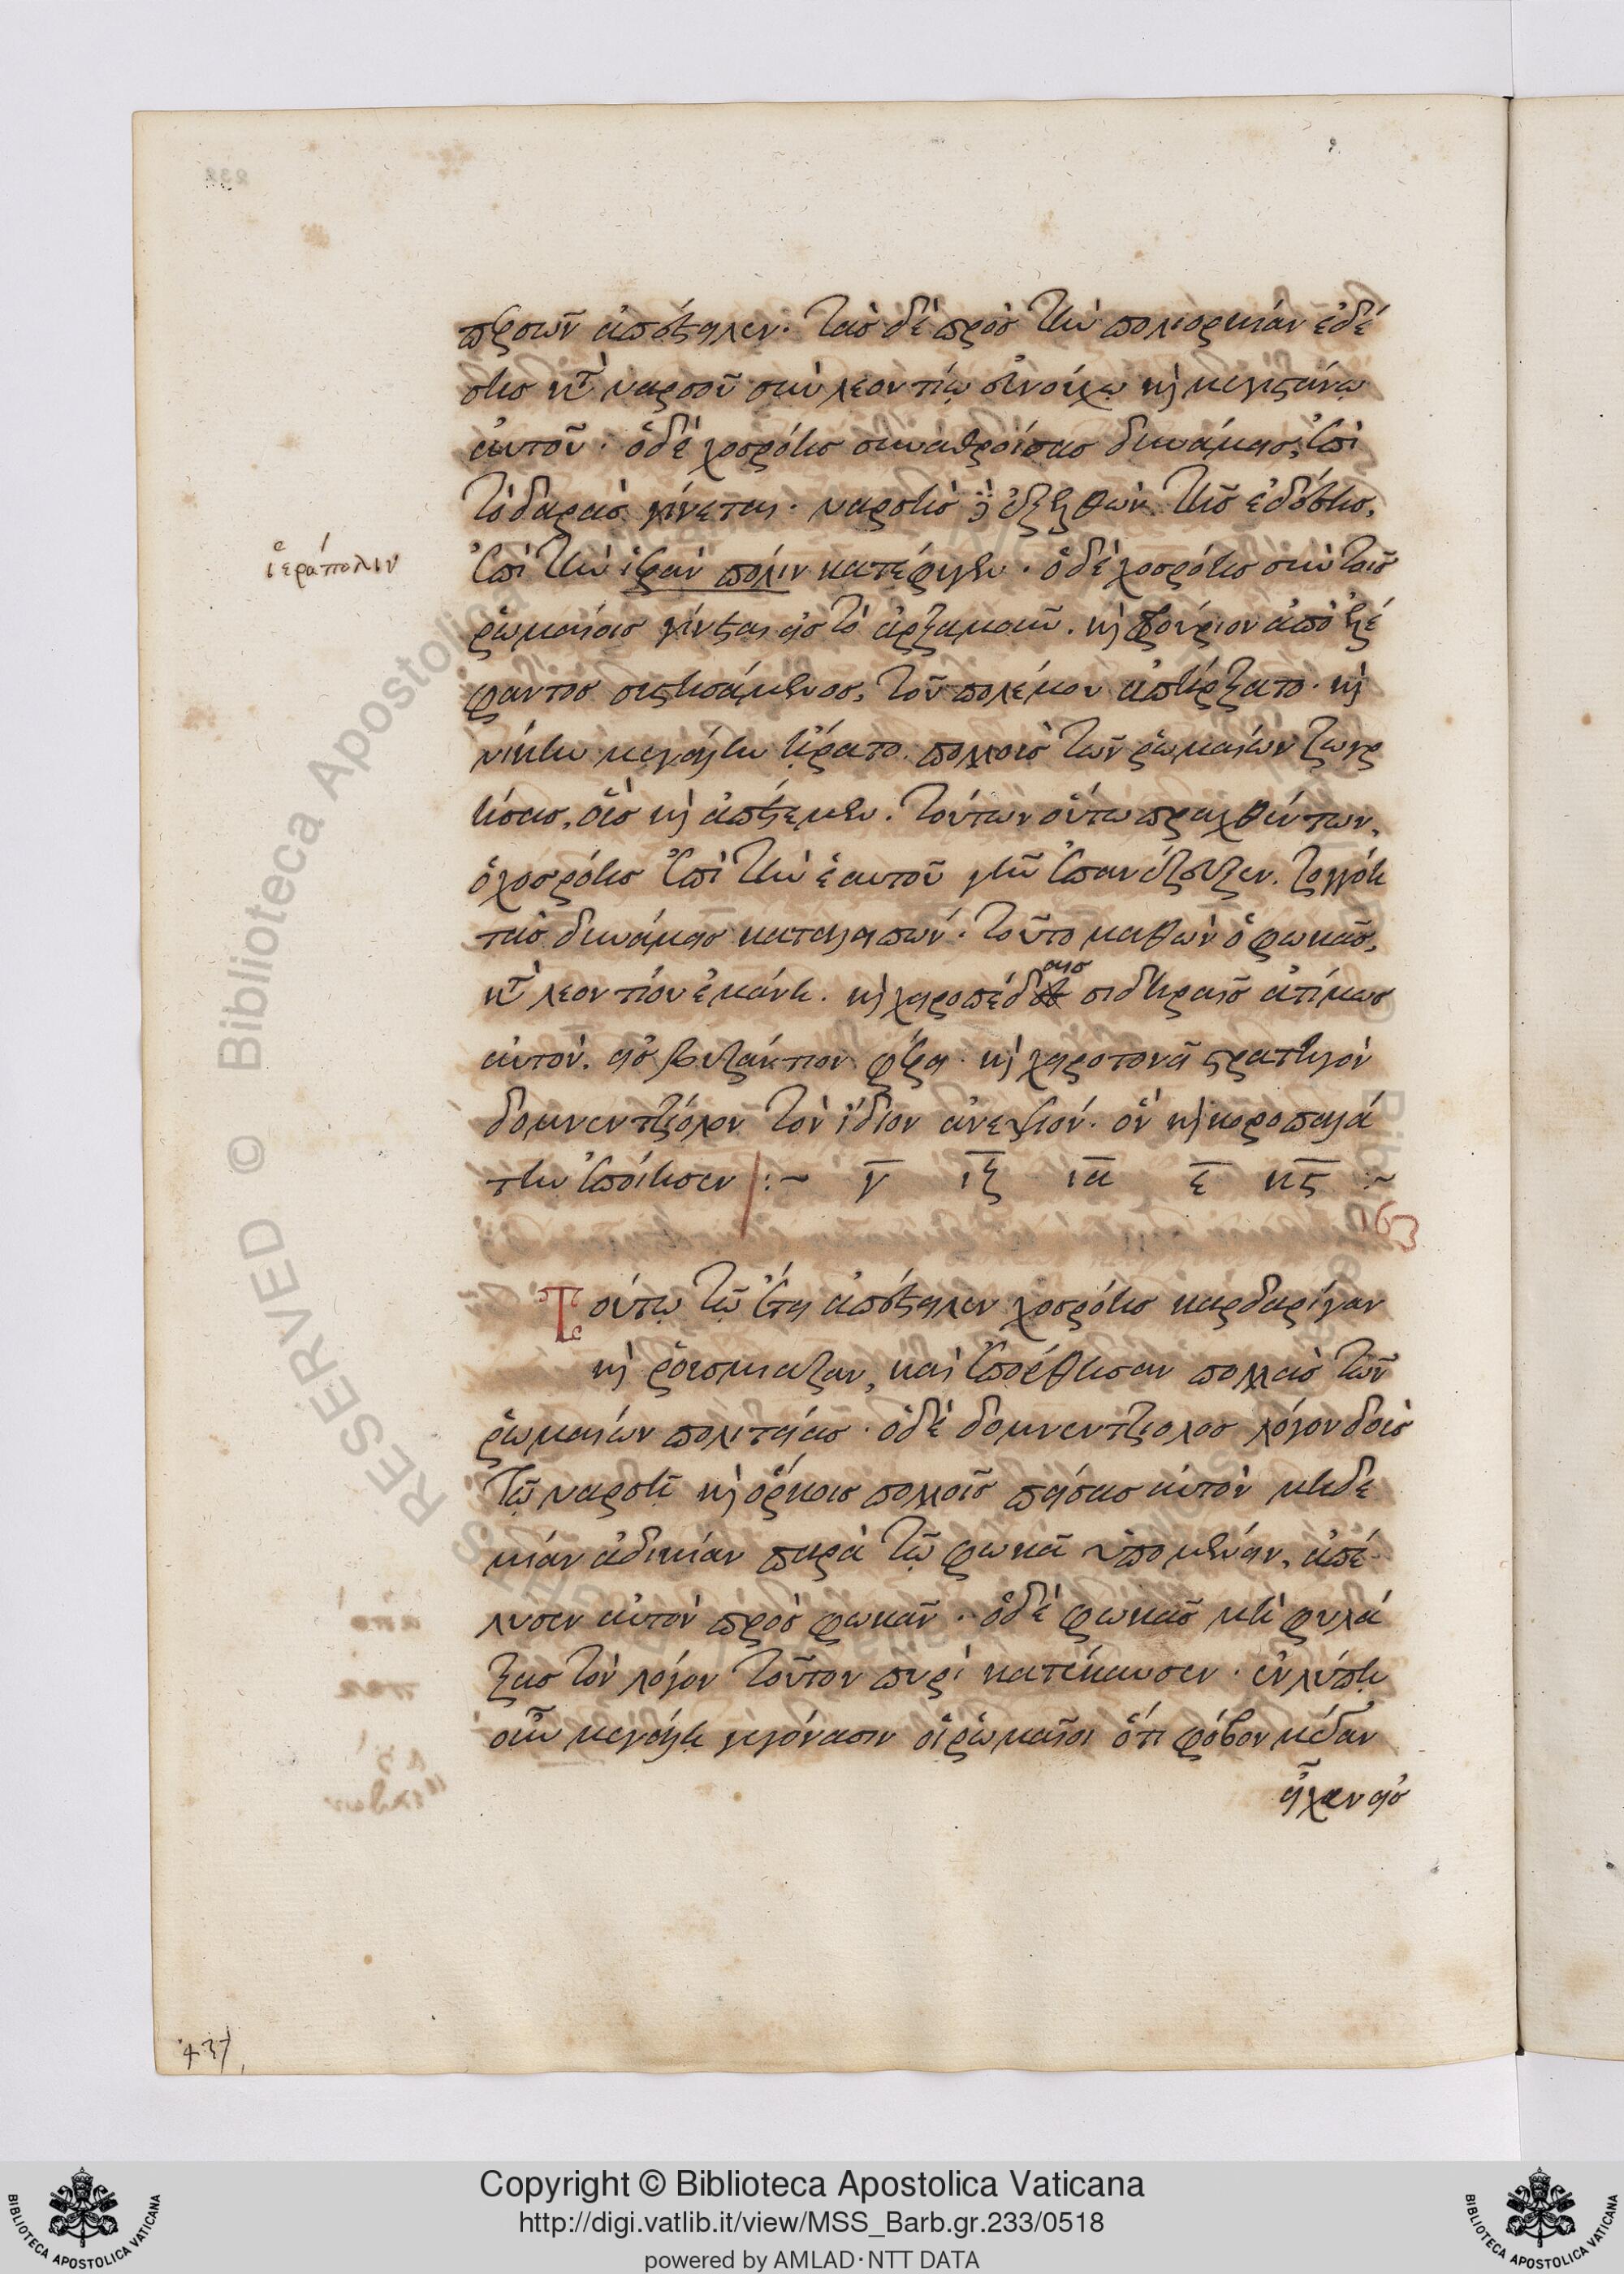 περσῶν ἀπέστειλεν. τὰς δὲ πρὸς τὴν πολιορκίαν ἐδέ
σης κατὰ ναρσοῦ σὺν λεοντίῳ εὐνούχῳ καὶ μεγιστάνῳ
αὐτοῦ. ὁ δὲ χοσρόης συναθροίσας δυνάμεις, ἐπὶ
τὸ δαρὰς γίνεται. ναρσὴς δὲ ἐξελθὼν τῆς ἐδέσης,
ἱεράπολιν
ἐπὶ τὴν ἱερὰν πόλιν κατέφυγεν. ὁ δὲ χοσρόης σὺν τοῖς
ῥωμαίοις γίνεται εἰς τὸ ἀρξαμοῦν. καὶ φρούριον ἀπὸ ἐλε
φαντος συστησάμενος, τοῦ πολέμου ἀπήρξατο. καὶ
νίκην μεγάλην ἤρατο. πολλοὺς τῶν ῥωμαίων ζωγρ
ήσας, οὓς καὶ ἀπέτεμεν. τούτων οὕτω πραχθέντων,
ὁ χοσρόης ἐπὶ τὴν ἑαυτοῦ γῆν ἐπανέζευξεν. ζογγόῃ
τὰς δυνάμεις καταλειπών. τοῦτο μαθὼν ὁ φωκᾶς,
κατὰ λεοντίου ἐμάνη. καὶ χειροπέδαις σιδηραῖς ἀτίμως
αὐτὸν. εἰς βυζάντιον φέρει. καὶ χειροτονεῖ στρατηγὸν
δομνεντζίολον τὸν ἴδιον ἀνεψιόν. ὃν καὶ κυροπαλά
την ἐποίησεν :~ γ ιζ ια ε κς :~
163
Τούτῳ τῷ ἔτει ἀπέστειλεν χοσρόης καρδαρίγαν
καὶ ῥουσμιαζαν, καὶ ἐπόρθησαν πολλὰς τῶν
ῥωμαίων πολιτείας. ὁ δὲ δομνεντζιολος λόγον δοὺς
τῷ ναρσῇ καὶ ὅρκοις πολλοῖς πείσας αὐτὸν μηδε
μίαν ἀδικίαν παρὰ τῷ φωκᾶ ὑπομένειν, ἀπέ
λυσεν αὐτὸν πρὸς φωκᾶν. ὁ δὲ φωκᾶς μὴ φυλά
ξας τὸν λόγον τοῦτον πυρὶ κατέκαυσεν. ἐν λύπῃ
οὖν μεγάλῃ γεγόνασιν οἱ ῥωμαῖοι ὅτι φόβον μέγαν
εἶχεν εἰς
437
RESERVED © Biblioteca Apostolica
Copyright © Biblioteca Apostolica Vaticana
http://digi.vatlib.it/view/MSS_Barb.gr.233/0518
powered by AMLAD·NTT DATA
BIBLIOTECA APOSTOLICA VATICANA
BIBLIOTECA APOSTOLICA VATICANA